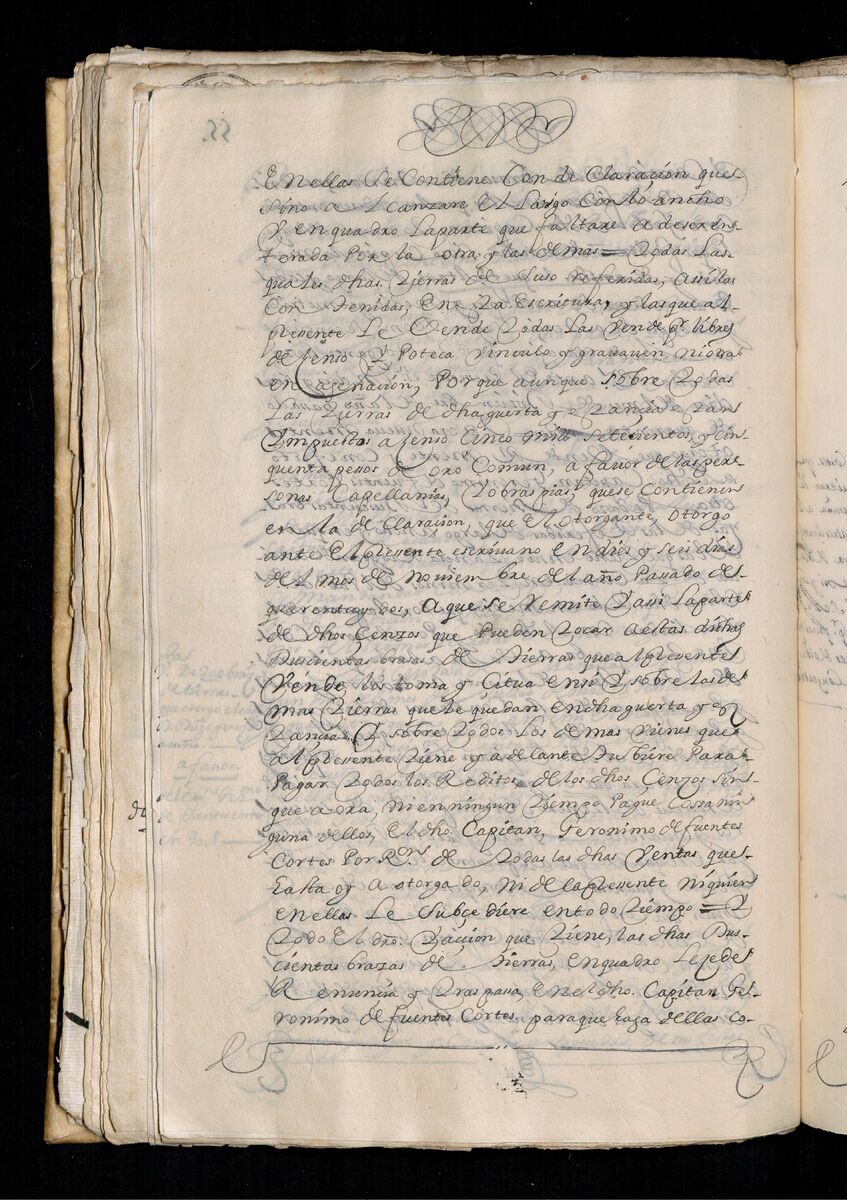 En ellas Se Contiene Con de Claraçion que
Sino a Alcanzare El Largo Con lo ancho
Y, en quadro Laparte que faltare a de ser en
terada Por la otra y las demas = Todas Las
quales dhas. Tierras de Suso Referidas, assi las
Contenidas, En La Escritura, y las que al
pressente Le Vende Todas Las Vende pr. libres
de Censo, Y Poteca Vinculo y grauamen ni otra
en agenaçion, Porque aunque sobre Todas
Las Tierras de dha guerta y estançia estan
Ympuestos a Censo Cinco mill setecientos, y çin
quenta pessos de oro Comun, a favor de las per
sonas Capellanias, Y obras pias, que se contienen
en la de Claraçion, que El otorgante, otorgo
ante El pressente escriuano En dies y seis dias
del mes de Noviembre del año Passado de s
quarenta y dos, a que se Remite Y assi Laparte
de dhos Çenzos que Pueden Tocar a estas dichas
Duscientas brasas de Tierras que al pressente
Vende, las toma y Citua en si Y sobre las de
mas Tierras que le quedan en dha guerta y es
Tançia, Y sobre Todos Los demas Vienes que
al pressente Tiene y a delante Tubiere Para
Pagar Todos los Reditos, de los dhos Cenzos sin
que aora, ni en ningun Tiempo Pague Cossa nin
guna dellos, El dho. Capitan, Geronimo de fuentes
Cortes Por Ron. de Todas las dhas Ventas que
Easta oy a otorgado, ni de la pressente ni quien
En ellas Le Subçediere en todo Tiempo = Y
Todo El dro. Y acçion que Tiene, las dhas Dus-
cientas brazas de Tierras, en quadro Le çede
Renunçia y Traspassa, En el dho. Capitan Ge-
ronimo de fuentes Cortes. para que Eaga dellas Co-